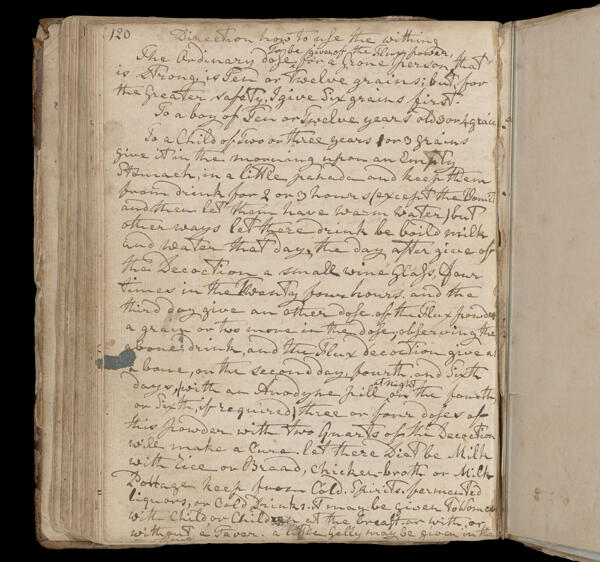 120
Direction how to use the withing
To be given of the Flux powder,
The Ordinary dose for a grone person that
is strong is Ten or Twelve grains; but for
the Greater safety, I give Six grains first.
To a boy of Ten or Twelve years old 3 or 4 grains
To a Child of Two or three years 1 or 3 grains
give it in the morning upon an Empty
Stomach, in a little panada and keep them
from drink for 2 or 3 hours (except the Vomit
and then let them have warm water) but
other ways let there drink be boild milk
and water that day, the day after give of
the Decoction a small wine Glass, four
times in the twenty four hours. and the
third day give an other dose of the Flux powder
a grain or two more in the dose, observing the
above drink, and the Flux decoction give as
above, on the second day, fourth. and Sixth
days, with an Anodyne pill at night on the fourth
or Sixth, if required, three or four doses of
this powder with two Quarts of the Decoction
will make a Cure. let there Diet be Milk
with Rice or Bread, Chicken-broth or Milk
Pottage keep from Cold. Spirits. fermented
liquors, or Cold Drinks. it may be given to Women
with Child or Children at the breast or with, or
without a Fever. a little Gelly may be given in the